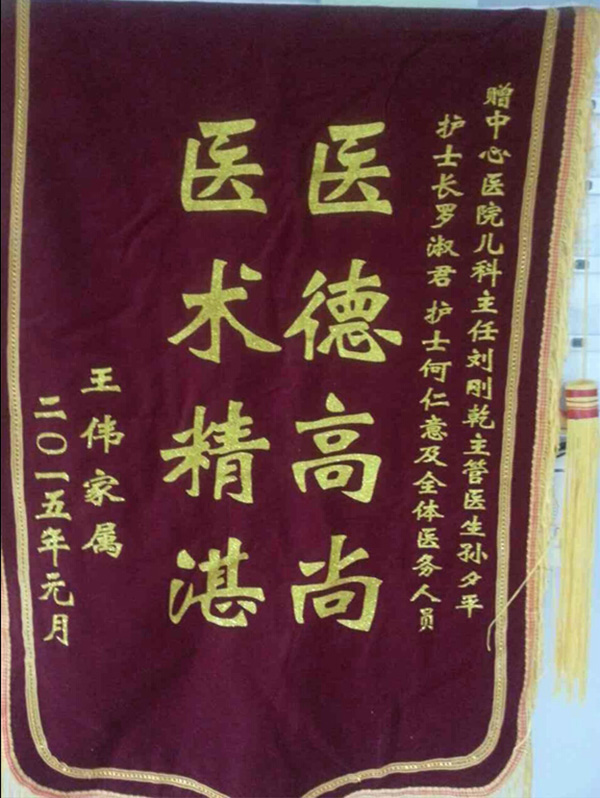 赠中心医院儿科主任刘刚乾主管医生孙夕平
护士长罗淑君 护士何仁意及全体医务人员
医德高尚
医术精湛
王伟家属
二〇一五年元月